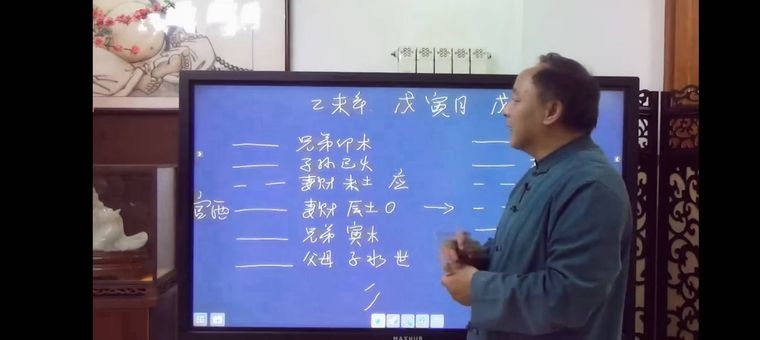 乙未年 戊寅月 戊
兄弟卯木
子孙巳火
妻财未土 应
官酉 妻财辰土〇 →
兄弟寅木
父母子水世
MAXHUB